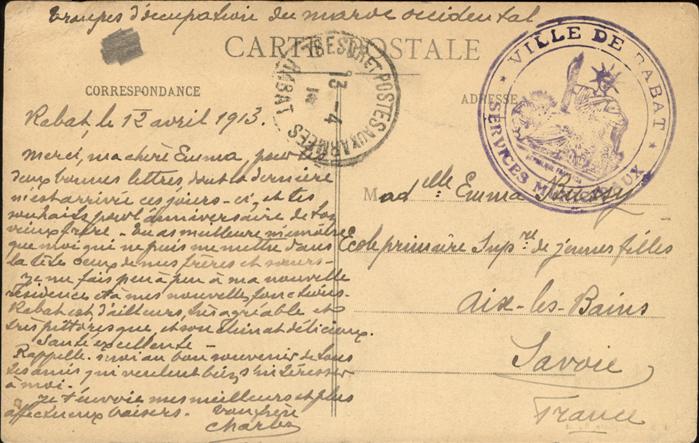 Troupes d'occupation du maroc occidental
CARTE POSTALE
CORRESPONDANCE
ADRESSE
TRESOR ET POSTES AUX ARMEES
RABAT
13-4
13
VILLE DE RABAT
SERVICES MUNICIPAUX
Rabat, le 12 avril 1913.
Merci, ma chère Emma, pour
deux bonnes lettres, dont la dernière
m'est arrivée ces jours-ci, et tes
souhaits pour l'anniversaire de ton
vieux frère. Tu as meilleure mémoire
que moi qui ne puis me mettre dans
la tête ceux de mes frères et sœurs.
Je me fais peu à peu à ma nouvelle
résidence et à mes nouvelles fonctions.
Rabat est d'ailleurs, très agréable et
très pittoresque, et son climat délicieux.
Santé excellente.
Rappelle-moi au bon souvenir de tous
les amis qui veulent bien s'intéresser
à moi.
Je t'envoie mes meilleurs et plus
affectueux baisers. Ton frère
Charles
Mad elle Emma
Ecole primaire Sup re de jeunes filles
Aix-les-Bains
Savoie
France